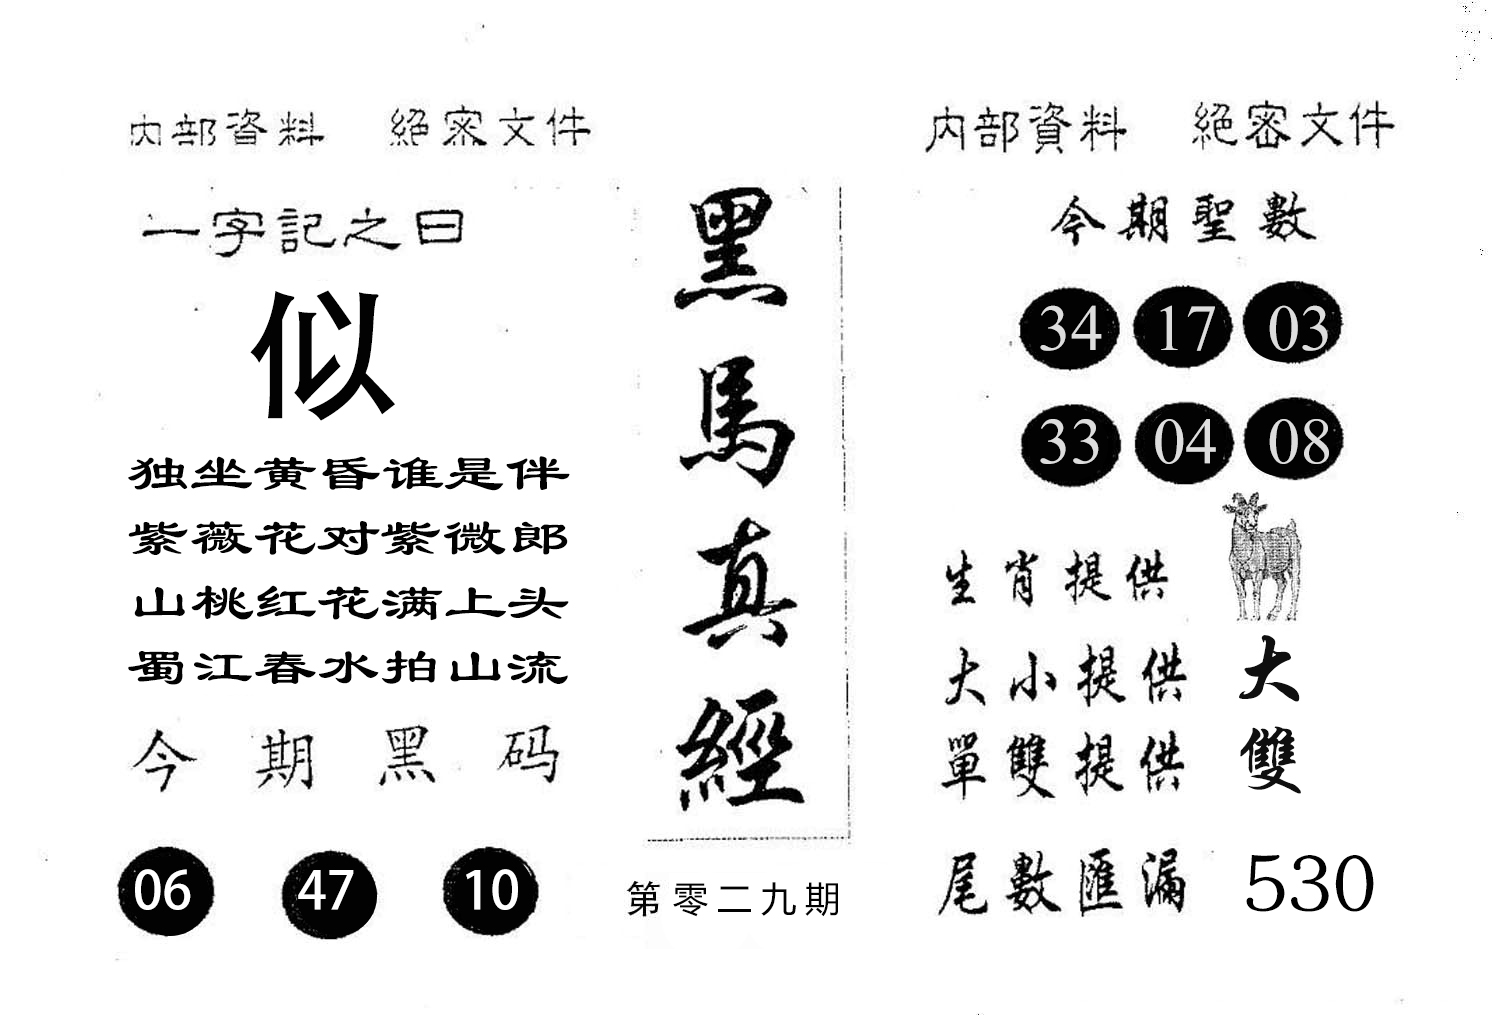 内部資料 絕密文件
一字記之曰
似
独坐黄昏谁是伴
紫薇花对紫微郎
山桃红花满上头
蜀江春水拍山流
今期黑码
06 47 10
黑馬真經
第零二九期
内部資料 絕密文件
今期聖數
34 17 03
33 04 08
生肖提供
大小提供 大
單雙提供 雙
尾數匯漏 530